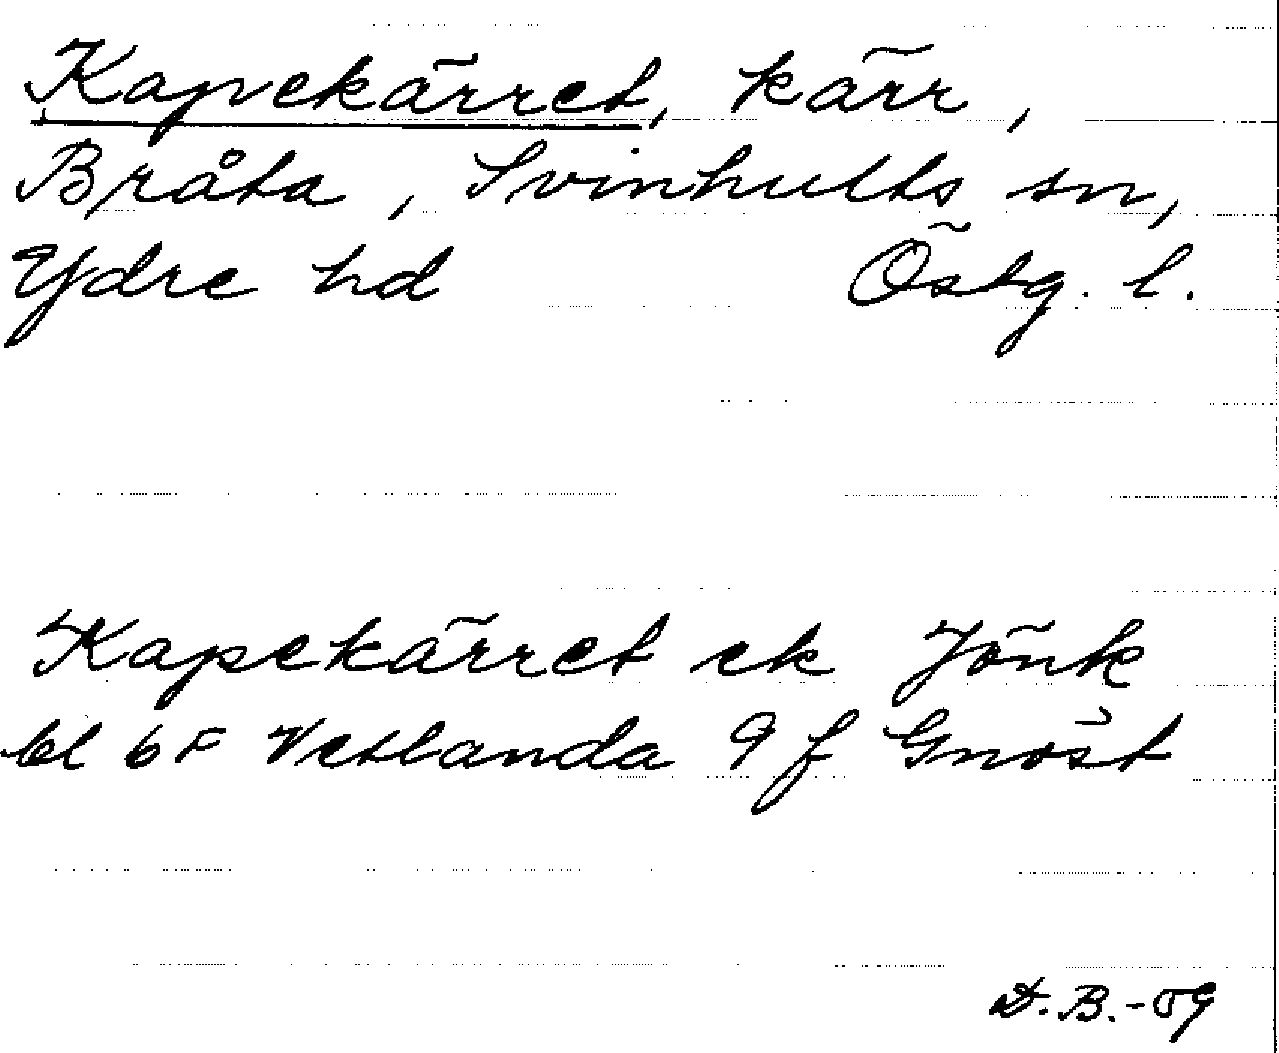 Kapekärret, kärr,
Bråta, Svinhults sn,
Ydre hd Östg. l.
Kapekärret ek Jönk
bl 6F Vetlanda 9f Gnöst
D.B.-59